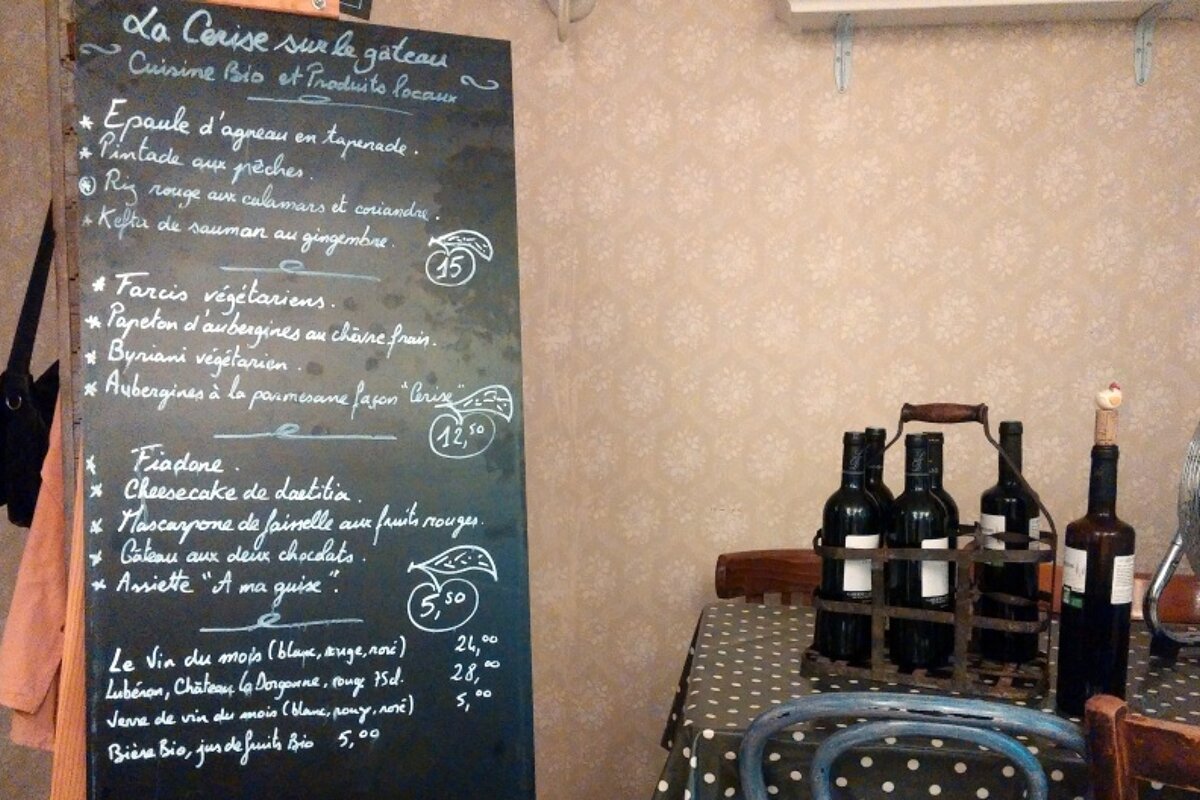 La Cerise sur le gateau
Cuisine Bio et Produits locaux
* Epaule d'agneau en tapenade.
* Pintade aux pêches.
* Riz rouge aux calamars et coriandre.
* Kefta de saumon au gingembre.
15
* Farcis végétariens.
* Papeton d'aubergines au chèvre frais.
* Byriani végétarien.
* Aubergines à la parmesane façon "Cerise"
12,50
* Fiadone.
* Cheesecake de Laetitia.
* Mascarpone de faisselle aux fruits rouges.
* Gâteau aux deux chocolats.
* Assiette "A ma guise".
5,50
Le Vin du mois (blanc, rouge, rosé) 24,00
Lubéron, Château la Dorgonne, rouge 75cl. 28,00
Verre de vin du mois (blanc, rouge, rosé) 5,00
Bière Bio, jus de fruits Bio 5,00